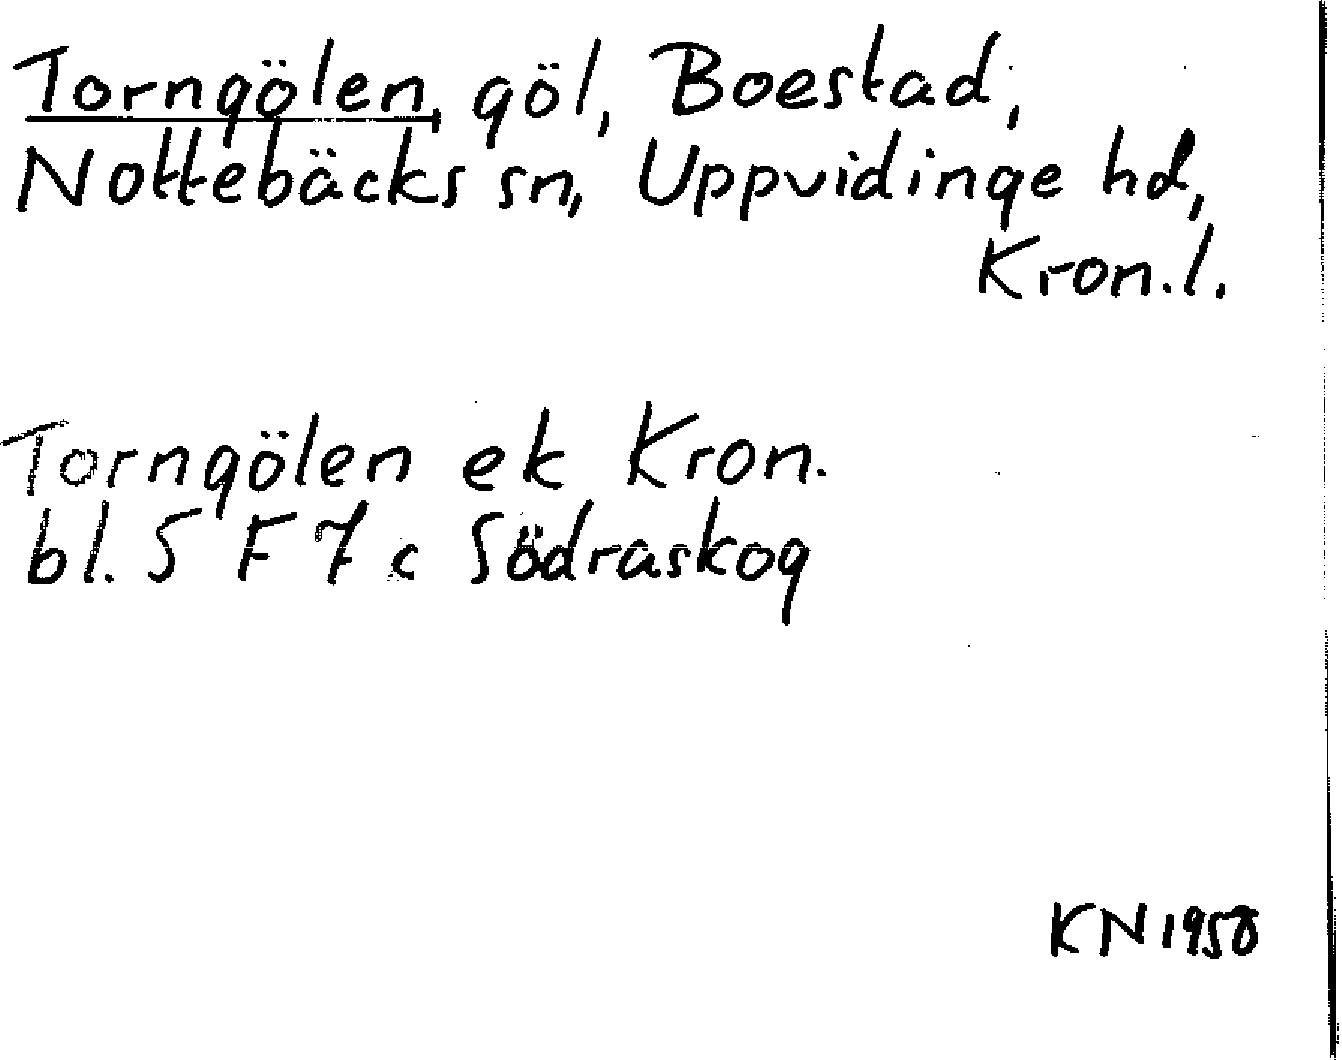 Torngölen, göl, Boestad,
Nottebäcks sn, Uppvidinge hd,
Kron.l.
Torngölen ek Kron.
bl. 5 F 7 c Södraskog
KN 1958